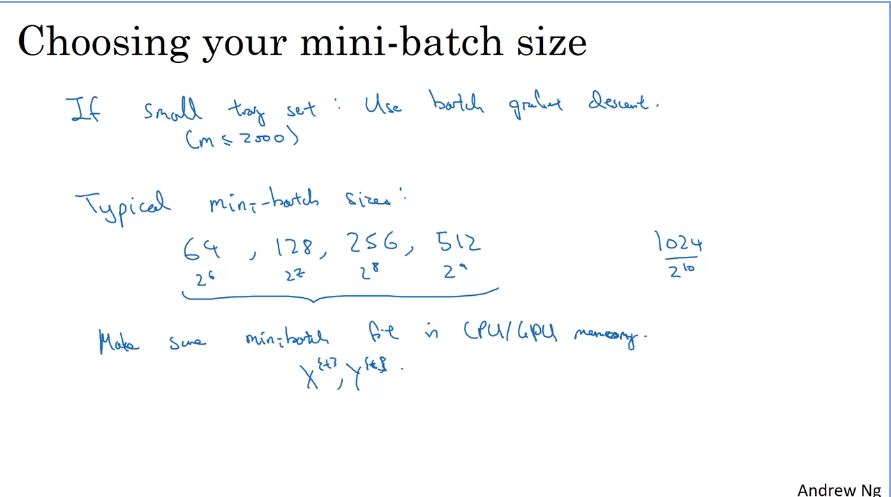 Choosing your mini-batch size
If small trag set : Use batch gradient descent.
(m ≤ 2000)
Typical mini-batch sizes:
64 , 128, 256, 512 1024
2⁶ 2⁷ 2⁸ 2⁹ 2¹⁰
Make sure mini-batch fit in CPU/GPU memory.
X^{t}, Y^{t}.
Andrew Ng